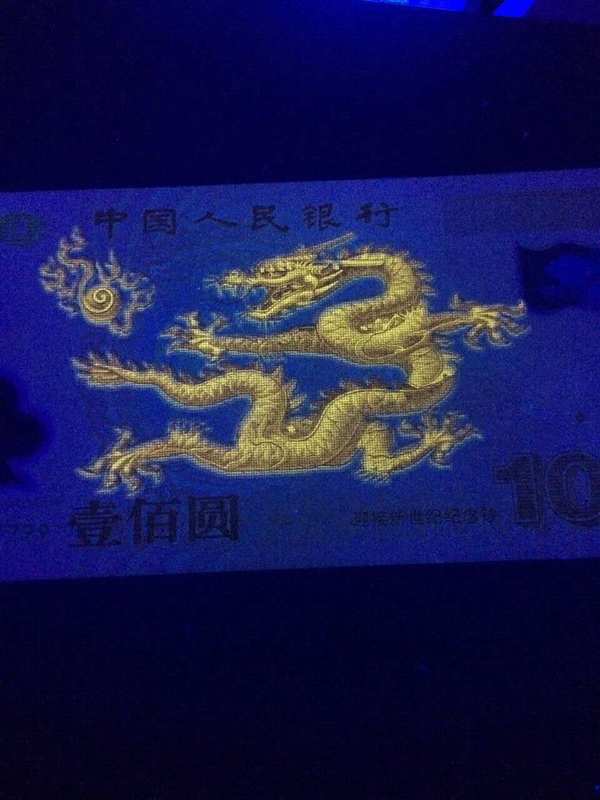 中国人民银行
7799
壹佰圆
迎接新世纪纪念钞
10